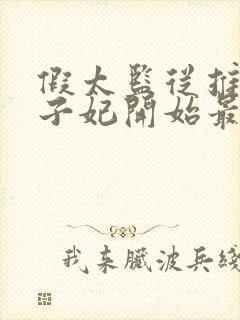 假太監從推
子妃開始最
我来臟波兵綫